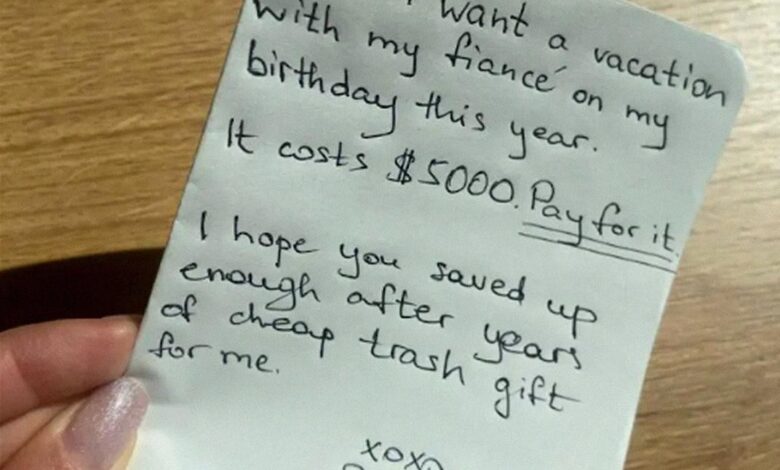 want a vacation
with my fiancé on my
birthday this year.
It costs $5000. Pay for it.
I hope you saved up
enough after years
of cheap trash gift
for me.
xoxo